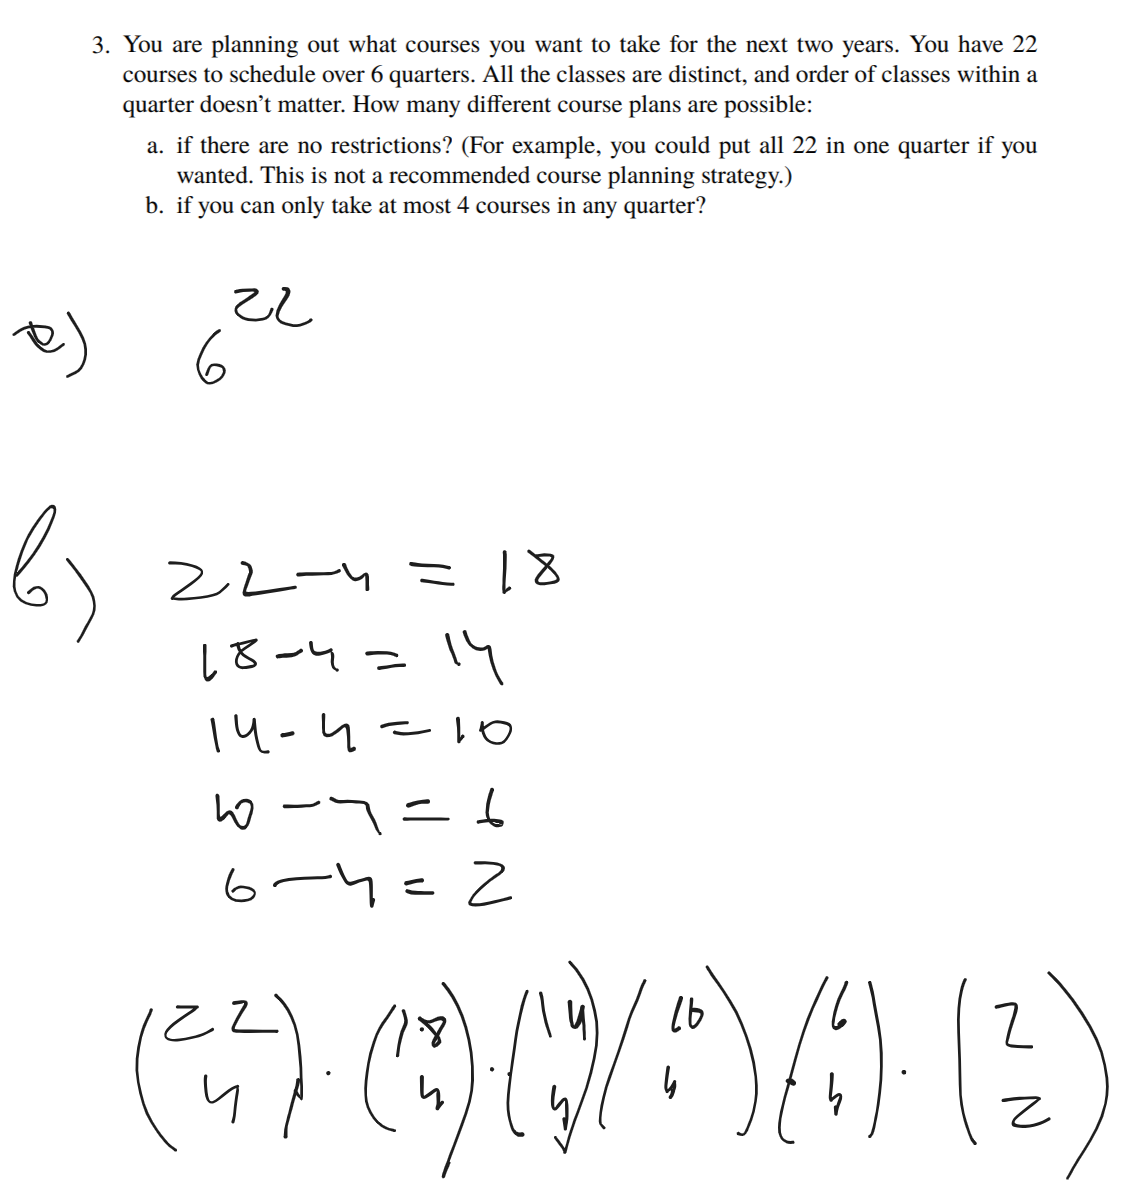 3. You are planning out what courses you want to take for the next two years. You have 22
courses to schedule over 6 quarters. All the classes are distinct, and order of classes within a
quarter doesn't matter. How many different course plans are possible:
a. if there are no restrictions? (For example, you could put all 22 in one quarter if you
wanted. This is not a recommended course planning strategy.)
b. if you can only take at most 4 courses in any quarter?
a) 6^22
b) 22-4 = 18
18-4 = 14
14-4 = 10
10-4 = 6
6-4 = 2
(22 4) · (18 4) · (14 4) (10 4) (6 4) · (2 2)